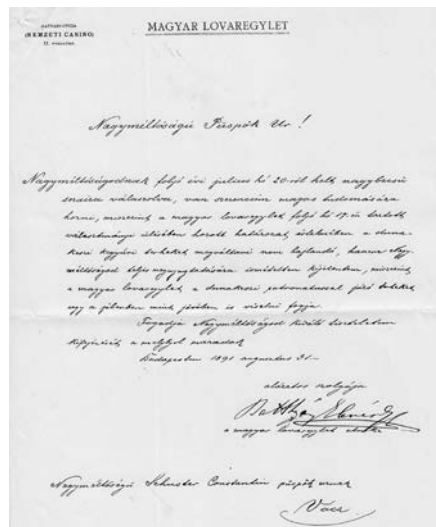 HATVANI-UTCZA
(NEMZETI CASINO)
II. emelet.
MAGYAR LOVAREGYLET
Nagyméltóságú Püspök Ur!
Nagyméltóságodnak folyó évi julius hó 20-ról kelt nagybecsü
soraira válaszolva, van szerencsém magas tudomására
hozni, miszerint a magyar lovaregylet folyó hó 17-én tartott
választmányi ülésében hozott határozat értelmében a duna-
keszi kegyúri terheket megváltani nem hajlandó, hanem Nagy-
méltóságod teljes megnyugtatására ismételten kijelentem, miszerint
a magyar lovaregylet a dunakeszi patronatussal járó terheket
ugy a jelenben mint jövőben is viselni fogja.
Fogadja Nagyméltóságod kiváló tiszteletem
kifejezését, a melylyel maradok
Budapesten 1891 augusztus 31-
alázatos szolgája
Batthyány Elemér
a magyar lovaregylet elnöke
Nagyméltóságú Schuster Constantin püspök urnak
Vácz